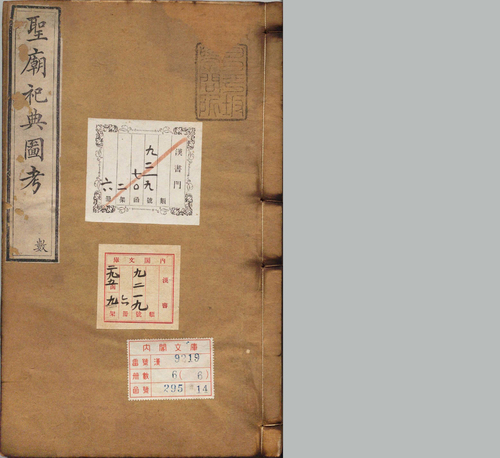 聖廟祀典圖考
數
昌平坂
學問所
漢書門
類
九二一九號
七〇函
二架
六冊
內閣文庫
漢書
九二一九
六
內閣文庫
番號 漢 9219
冊數 6(6)
函號 295 14